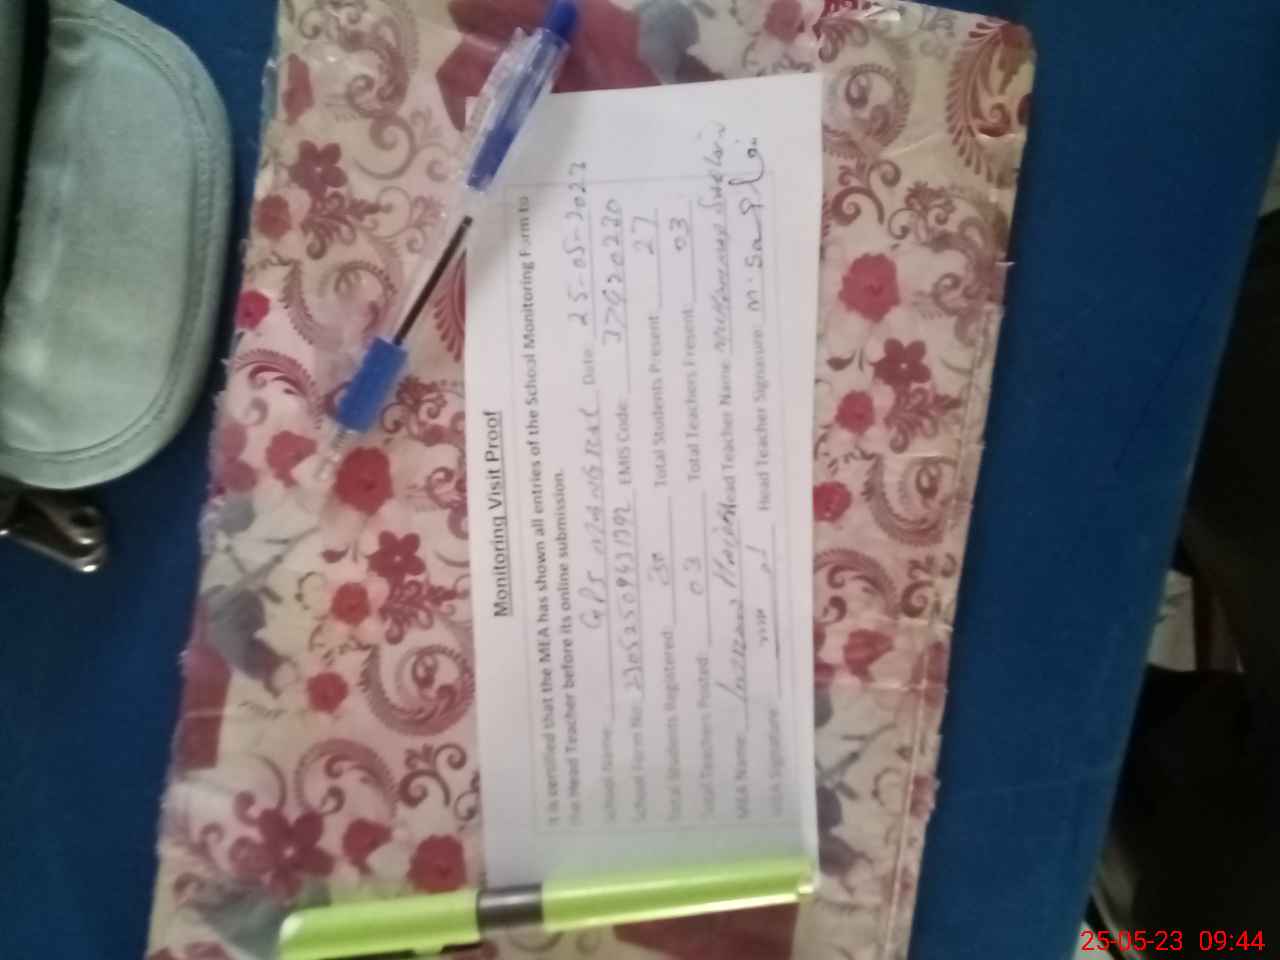 Monitoring Visit Proof
It is certified that the MEA has shown all entries of the School Monitoring Form to
the Head Teacher before its online submission.
School Name: GPS Date: 25-05-2023
School Form No: EMIS Code: 37420220
Total Students Registered: 30 Total Students Present: 27
Total Teachers Posted: 03 Total Teachers Present: 03
MEA Name: Head Teacher Name:
MEA Signature: Head Teacher Signature:
25-05-23 09:44